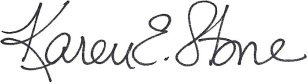 Karen E. Stone